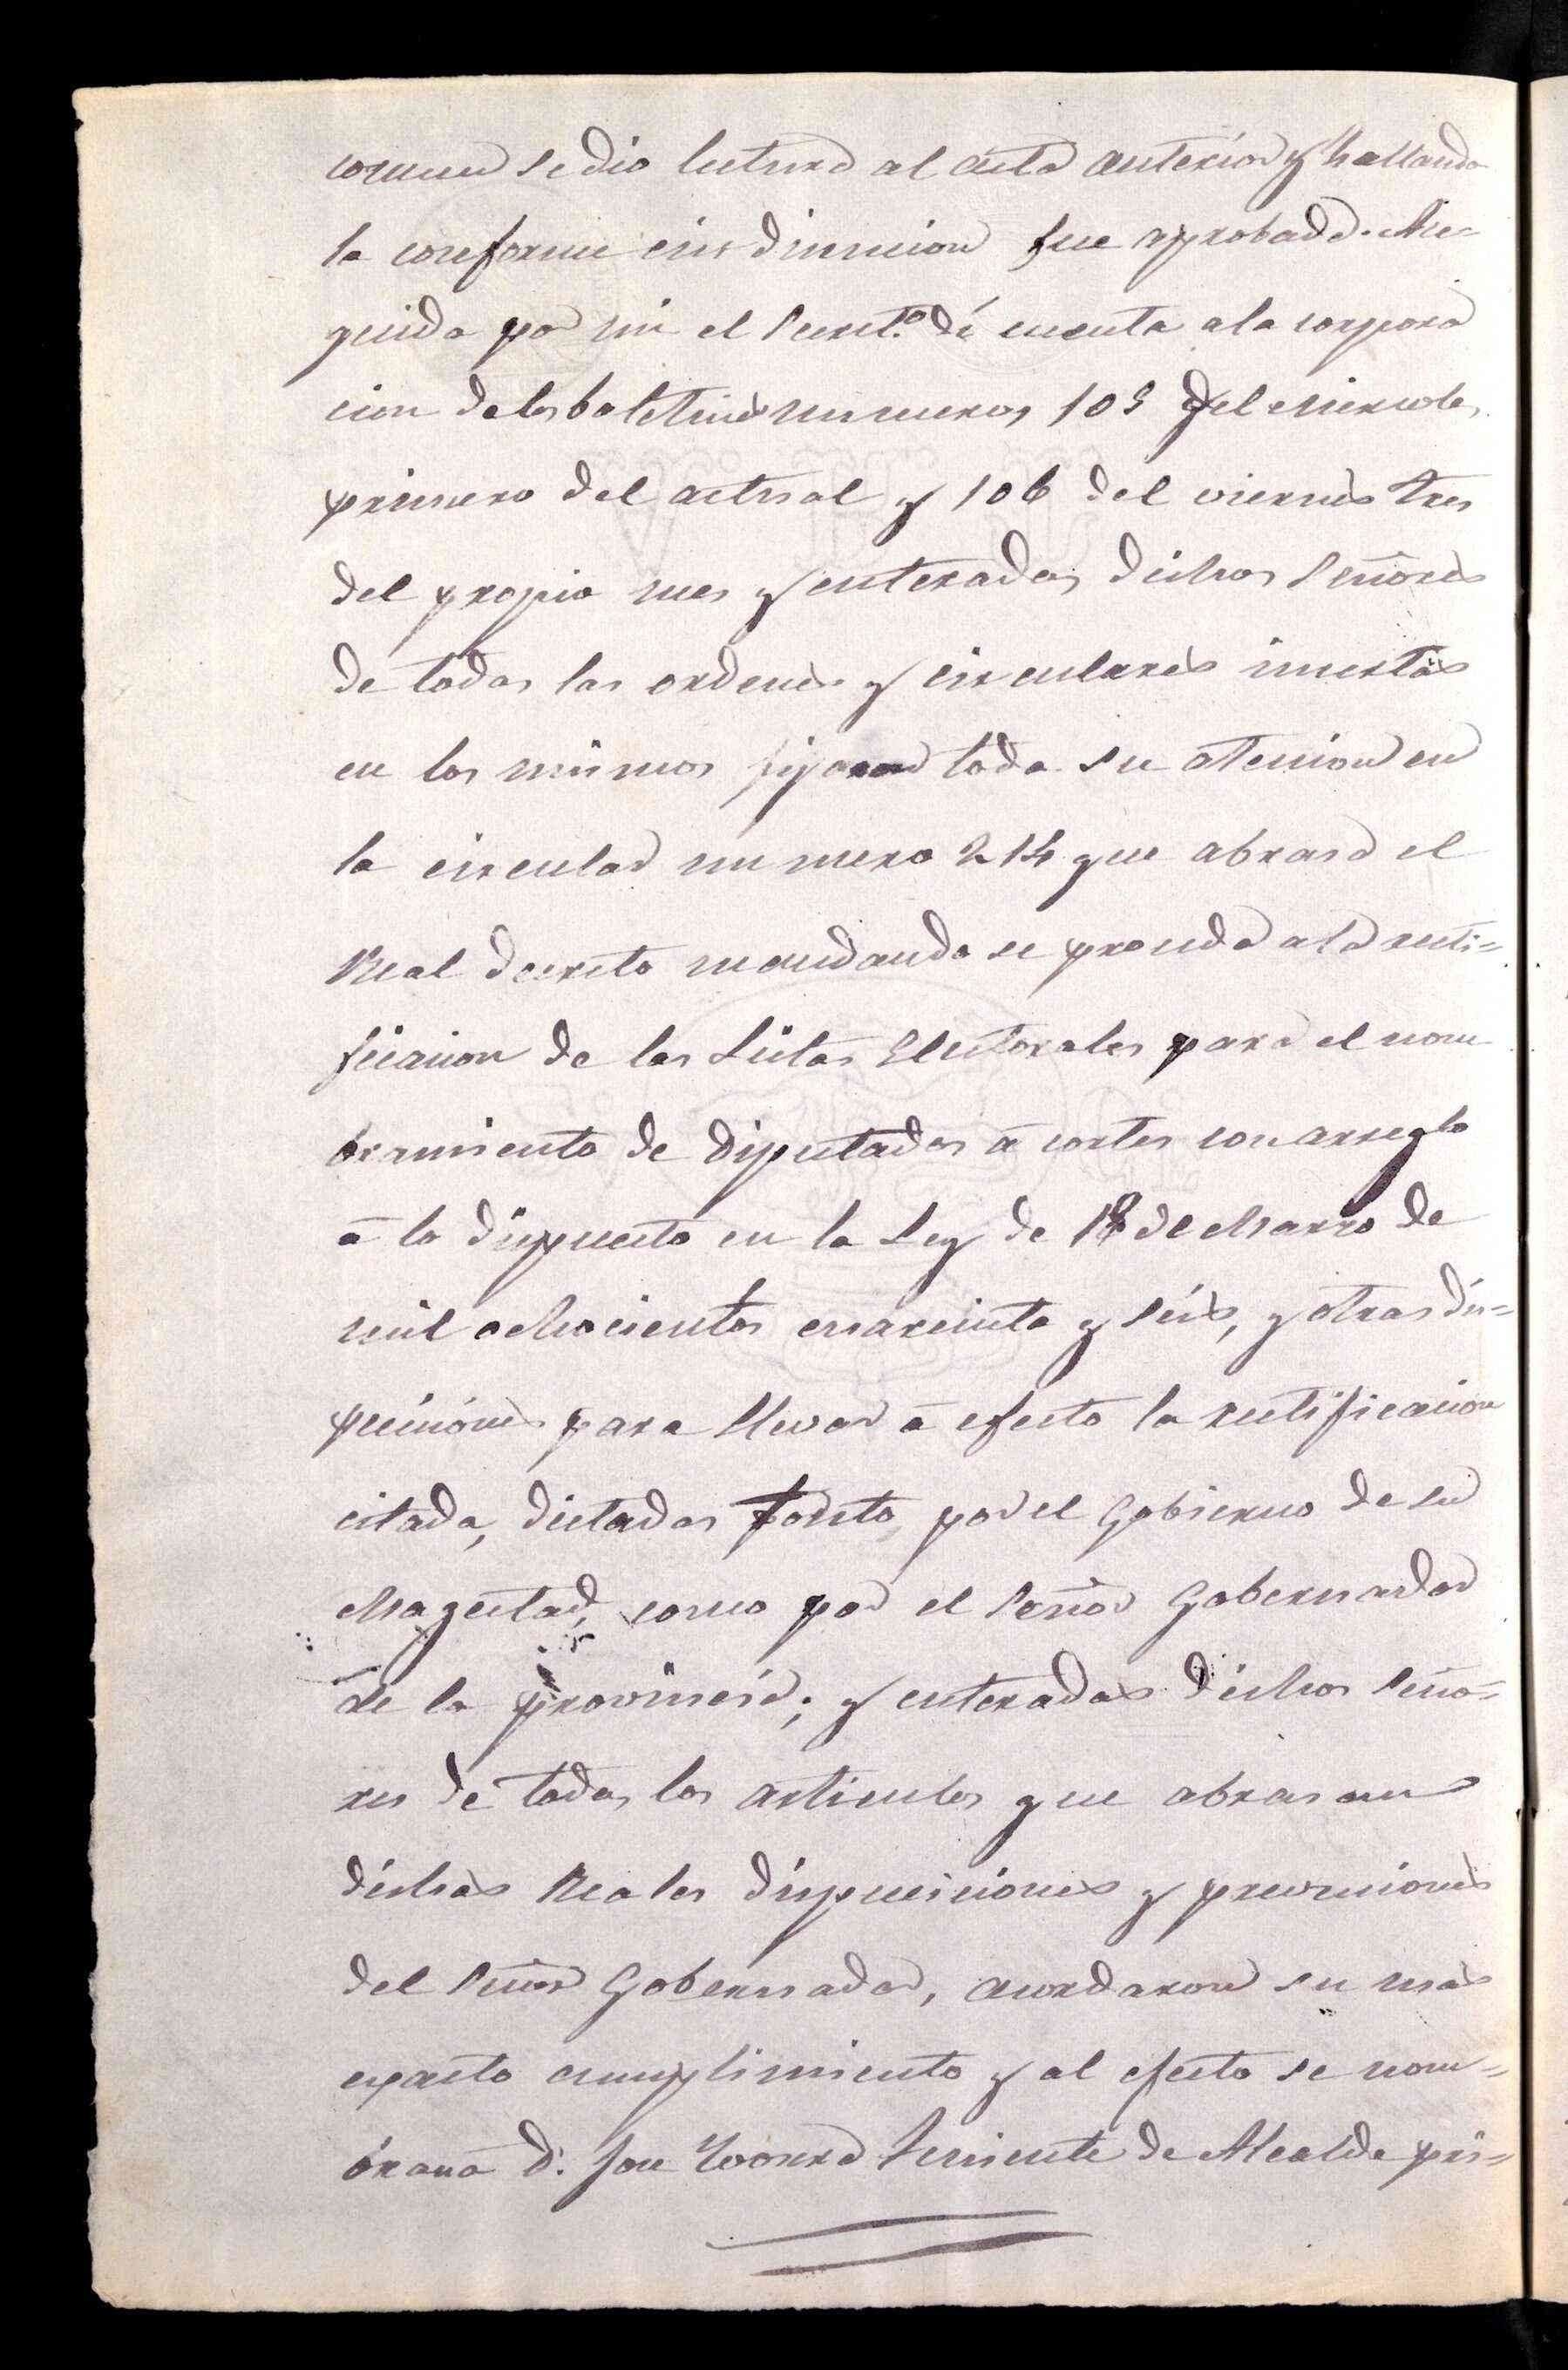 comun se dio lectura al acta anterior y hallando
la conforme sin discucion fue aprobada. Ase-
guida por mi el Secret.º dí cuenta a la corpora
cion de los boletines numeros 105 del miercoles
primero del actual y 106 del viernes tres
del propio mes y enterados dichos Señores
de todas las ordenes y circulares insertas
en los mismos fijaron toda su atencion en
la circular numero 214 que abrasa el
Real decreto mandando se proceda a la recti-
ficacion de las Listas Electorales para el nom
bramiento de Diputados á cortes con arreglo
á lo dispuesto en la Ley de 18 de Marzo de
mil ochocientos cuarenta y seis, y otras dis-
posiciones para llevar á efecto la rectificacion
citada, dictadas tanto por el Gobierno de su
Magestad, como por el Señor Gobernador
de la provincia; y enterados dichos Seño-
res de todos los articulos que abrasan
dichas Reales disposiciones y prevenciones
del Señor Gobernador, acordaron su mas
exacto cumplimiento y al efecto se nom-
brana D. Jose Teniente de Alcalde pri-